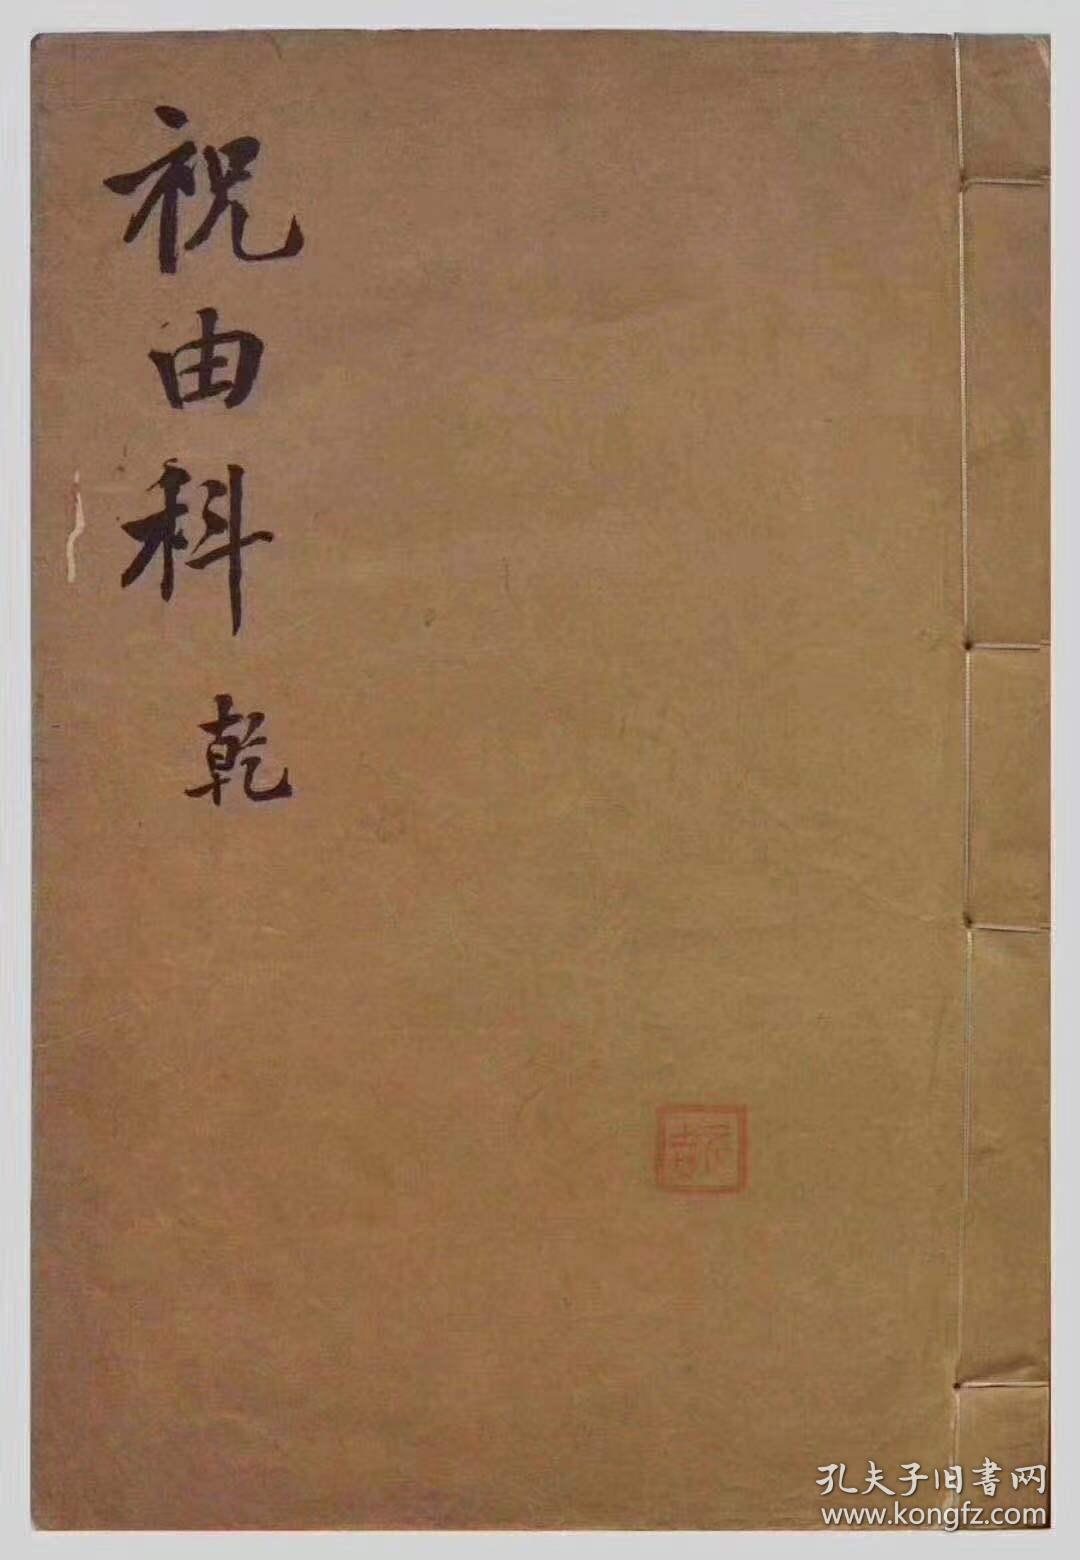 祝由科 乾
孔夫子旧書网
www.kongfz.com